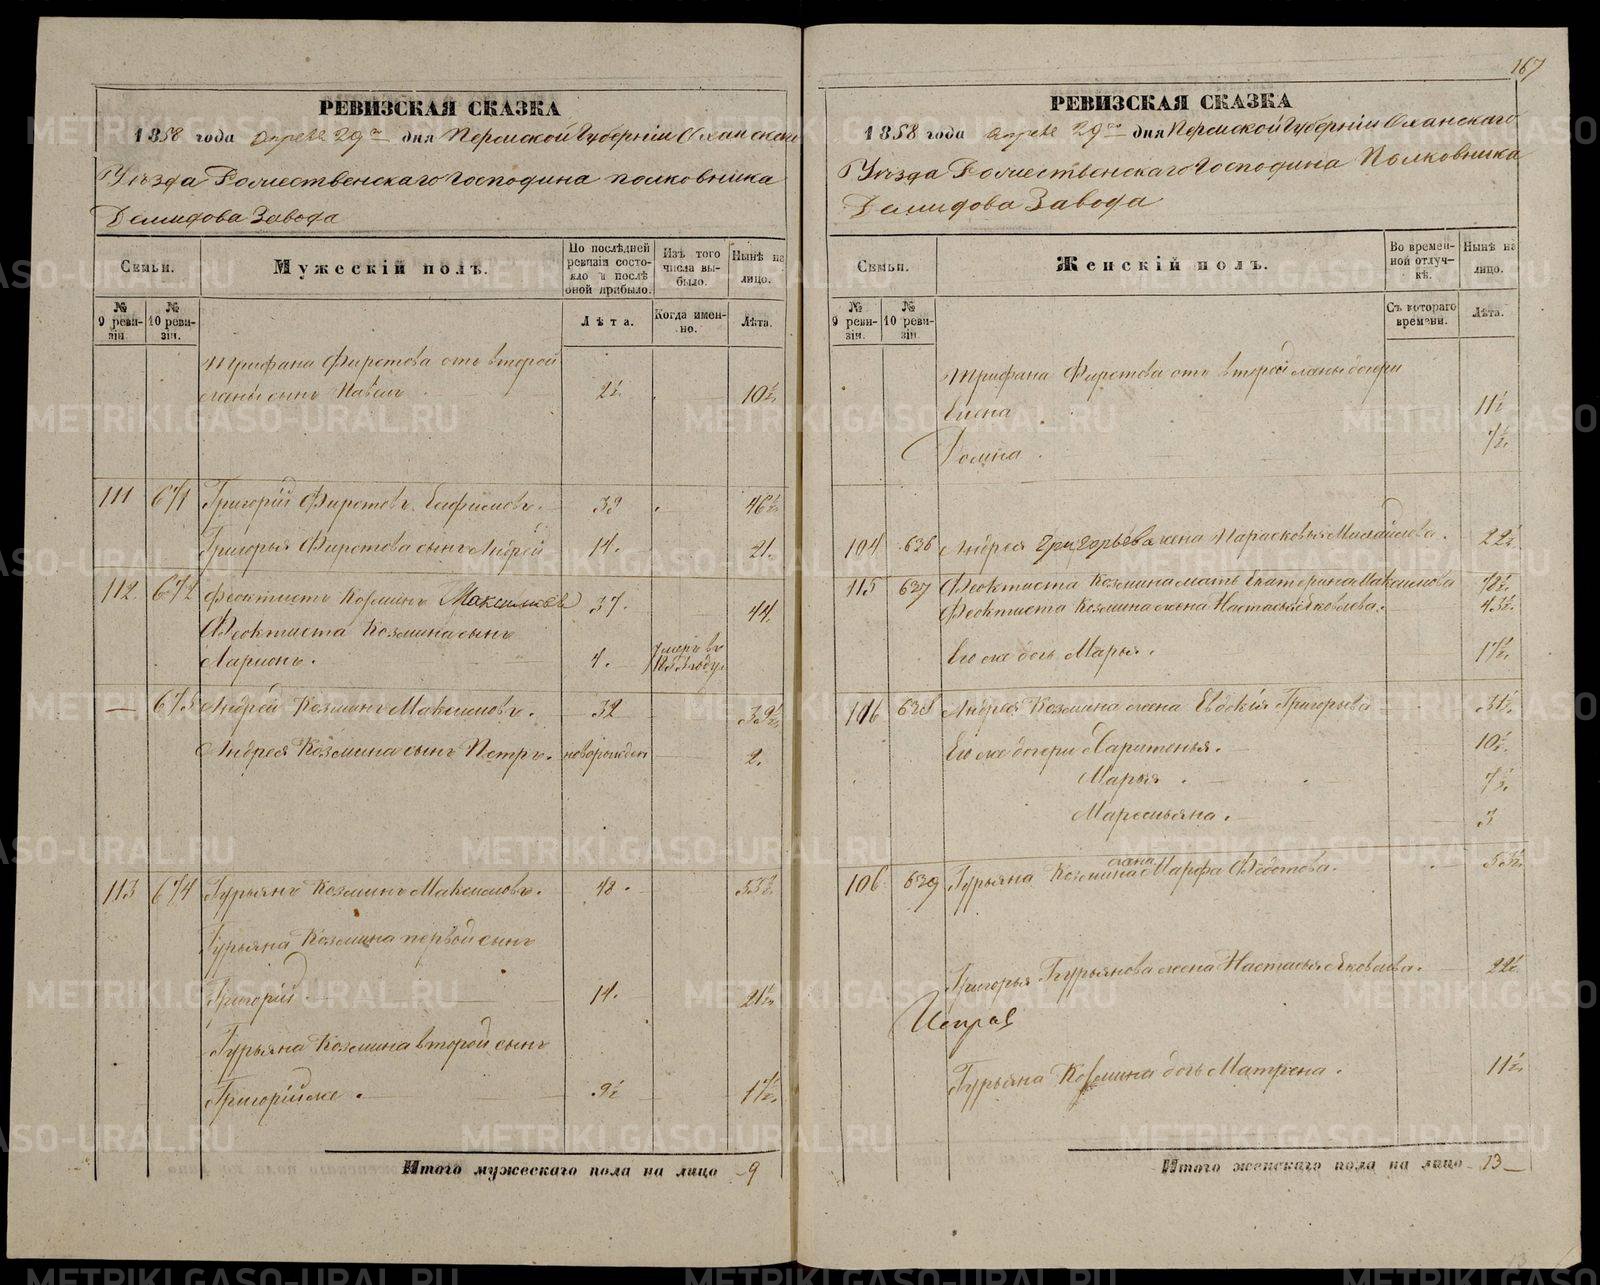 167
РЕВИЗСКАЯ СКАЗКА
1858 года апреля 29го дня Пермской Губернiи Оханскаго
Уѣзда Рожественскаго Господина полковника
Демидова Завода
Семьи.
Мужескiй полъ.
По послѣдней ревизiи состояло и послѣ оной прибыло.
Изъ того числа выбыло.
Нынѣ на лицо.
№ 9 ревизiи.
№ 10 ревизiи.
Лѣта.
Когда именно.
Лѣта.
Трифана Фиретова отъ второй
жены сынъ Павелъ 2½ 10½
111 671 Григорiй Фиретовъ Ефимовъ. 39 46½
Григорья Фиретова сынъ Андрей 14. 21.
112 672 Феоктистъ Козминъ Максимовъ 37. 44.
Феоктиста Козмина сынъ
Ларионъ. 4. умеръ въ году
— 673 Андрей Козминъ Максимовъ. 32 39½
Андрея Козмина сынъ Петръ. новорожден 2.
113 674 Гурьянъ Козминъ Максимовъ. 48. 55½
Гурьяна Козмина первой сынъ
Григорiй 14. 21½
Гурьяна Козмина второй сынъ
Григорiйже. 9½ 17½
Итого мужескаго пола на лицо 9
РЕВИЗСКАЯ СКАЗКА
1858 года апреля 29го дня Пермской Губернiи Оханскаго
Уѣзда Рожественскаго Господина Полковника
Демидова Завода
Семьи.
Женскiй полъ.
Во временной отлучкѣ.
Нынѣ на лицо.
№ 9 ревизiи.
№ 10 ревизiи.
Съ котораго времени.
Лѣта.
Трифана Фиретова отъ второй жены дочери
Елена 11½
Домна. 7½
104 626 Андрея Григорьева жена Парасковья Михайлова. 22½
115 627 Феоктиста Козмина мать Екатерина Максимова 70½
Феоктиста Козмина жена Настасья Яковлева. 43½
Его же дочь Марья. 17½
106 628 Андрея Козмина жена Евдокiя Григорьева 31½
Его же дочери Харитенья. 10½
Марья. 7½
Маремьяна. 3
106 629 Гурьяна Козмина жена Марфа Федотова. 53½
Григорья Гурьянова жена Настасья Яковлева. 22½
Гурьяна Козмина дочь Матрена. 11½
Итого женскаго пола на лицо 13
METRIKI.GASO-URAL.RU